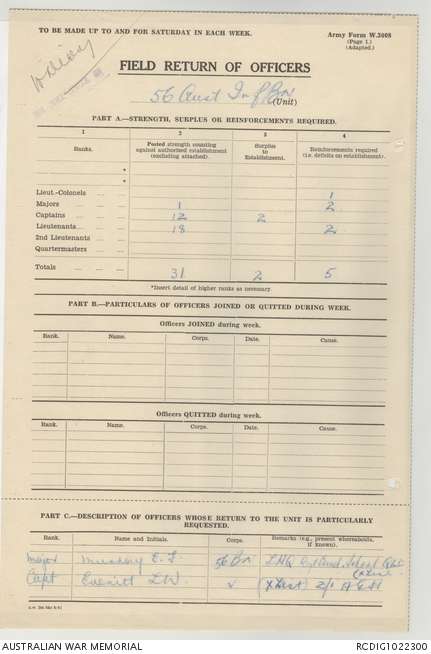 TO BE MADE UP TO AND FOR SATURDAY IN EACH WEEK.
Army Form W.3008
(Page 1.)
(Adapted.)
FIELD RETURN OF OFFICERS
56 Aust Inf Bn
(Unit)
PART A.—STRENGTH, SURPLUS OR REINFORCEMENTS REQUIRED.
1 2 3 4
Ranks. Posted strength counting against authorized establishment (excluding attached). Surplus to Establishment. Reinforcements required (i.e. deficits on establishment).
*
*
Lieut.-Colonels 1
Majors 1 2
Captains 12 2
Lieutenants 18 2
2nd Lieutenants
Quartermasters
Totals 31 2 5
*Insert detail of higher ranks as necessary
PART B.—PARTICULARS OF OFFICERS JOINED OR QUITTED DURING WEEK.
Officers JOINED during week.
Rank. Name. Corps. Date. Cause.
Officers QUITTED during week.
Rank. Name. Corps. Date. Cause.
PART C.—DESCRIPTION OF OFFICERS WHOSE RETURN TO THE UNIT IS PARTICULARLY REQUESTED.
Rank. Name and Initials. Corps. Remarks (e.g., present whereabouts, if known).
Major 56 Bn LHQ School
Capt Everitt L.W. (X List) 2/1
AUSTRALIAN WAR MEMORIAL
RCDIG1022300